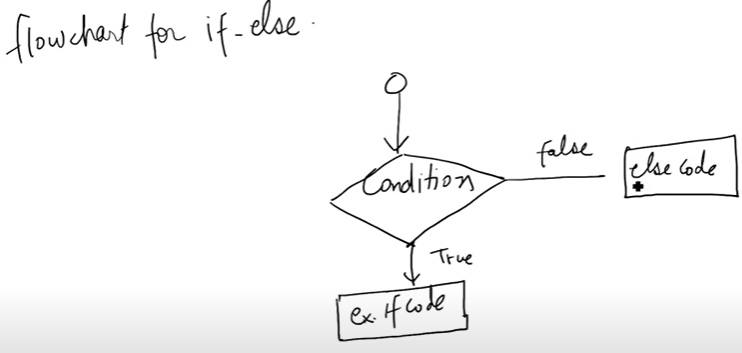 flowchart for if-else.
Condition
false
else code
True
ex. if code